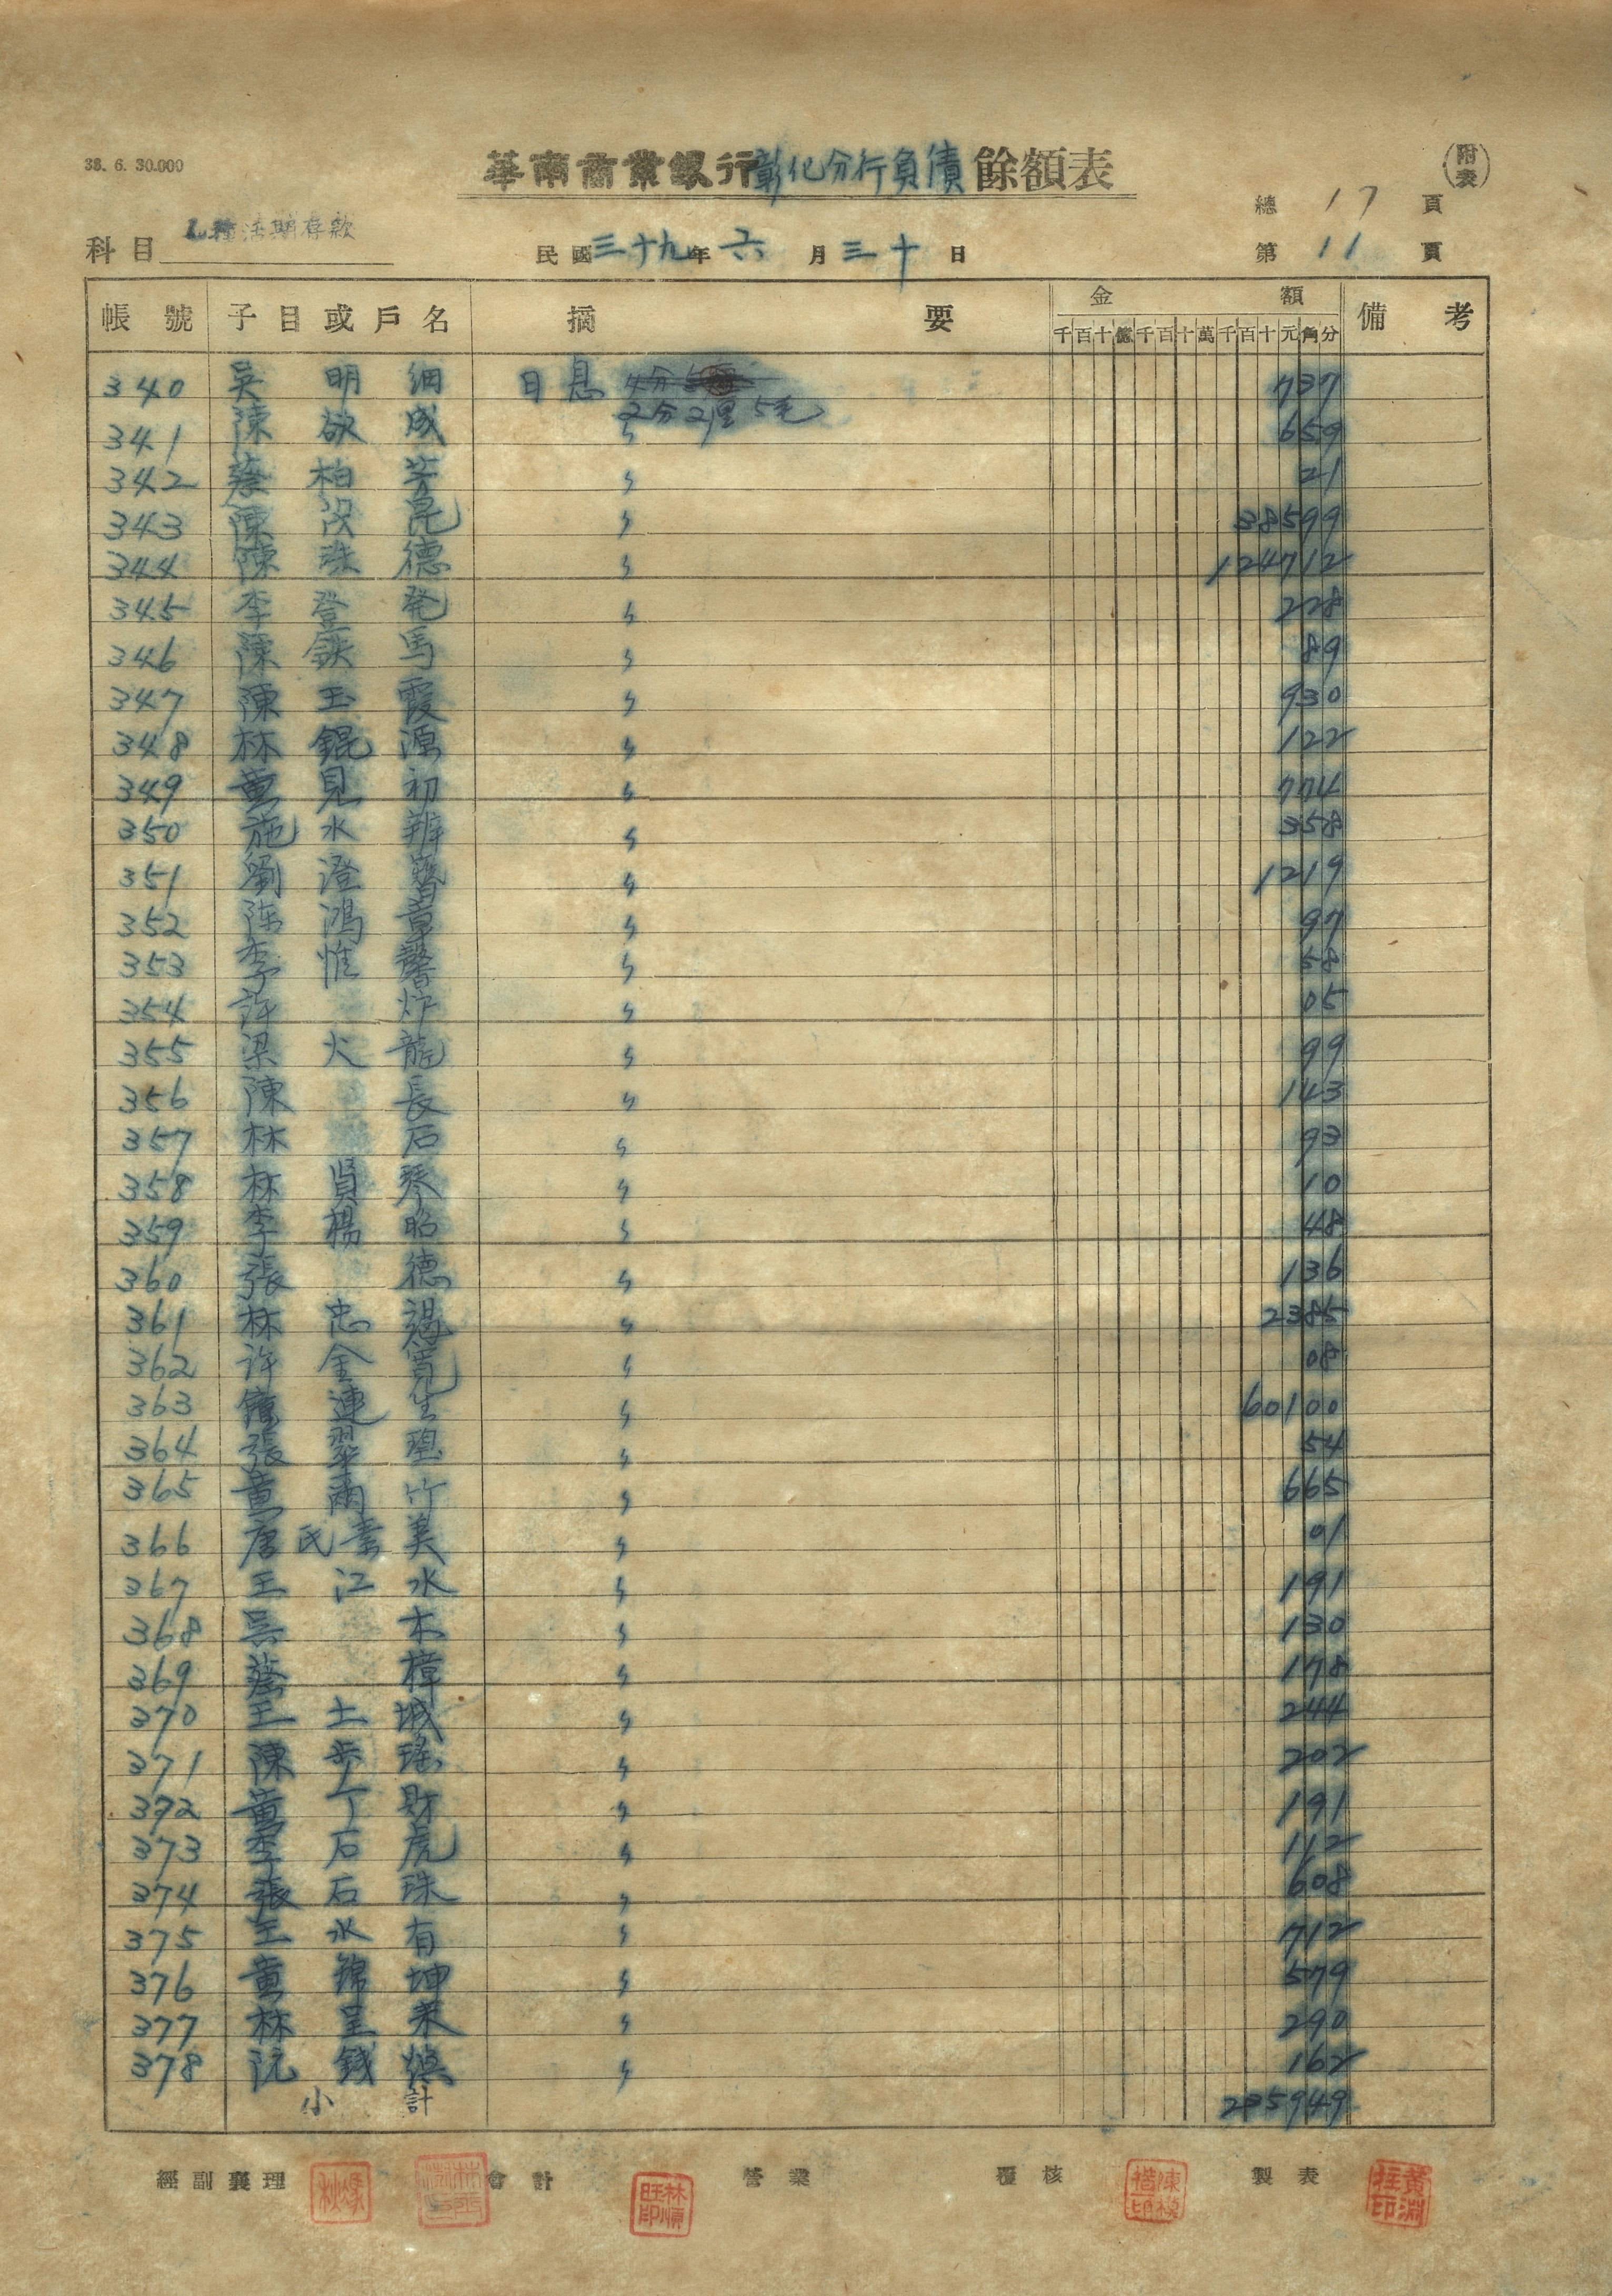 38. 6. 30.000
華南商業銀行彰化分行負債餘額表
附表
總 17 頁
科目 乙種活期存款
民國三十九年六月三十日
第 11 頁
帳號 子目或戶名 摘要 金額 備考
千百十億千百十萬千百十元角分
340 吳明細 日息 737
2分2厘5毛
341 陳欲成 〃 659
342 蔡柏芳 〃 21
343 陳昆 〃 38599
344 陳珠德 〃 124712
345 李登発 〃 228
346 陳鉄馬 〃 89
347 陳玉霞 〃 930
348 林錕源 〃 122
349 黃見初 〃 774
350 施水辦 〃 358
351 劉澄 〃 1219
352 陈鴻章 〃 97
353 李惟馨 〃 58
354 許炉 〃 05
355 梁火龍 〃 99
356 陳長 〃 143
357 林石 〃 93
358 林賢琴 〃 10
359 李楊昭 〃 48
360 張德 〃 136
361 林忠 〃 2385
362 許金寛 〃 08
363 連生 〃 60100
364 張翠 〃 54
365 黃爾竹 〃 665
366 唐氏素美 〃 01
367 王江水 〃 191
368 吳木 〃 130
369 蔡樟 〃 178
370 王土城 〃 244
371 陳步瑤 〃 202
372 黃丁財 〃 191
373 李石虎 〃 112
374 張石珠 〃 608
375 王水有 〃 712
376 黃錦坤 〃 579
377 林呈来 〃 290
378 阮錢 〃 162
小計 235949
經副襄理 會計 營業 覆核 製表
林順旺印
黃淵柱印